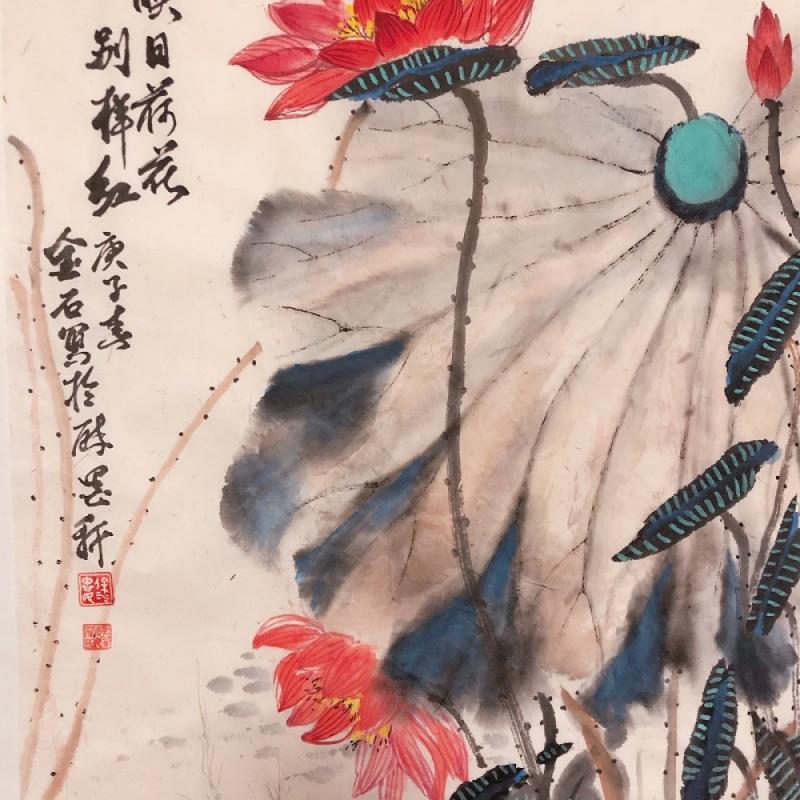 映日荷花
别样红
庚子春
金石写於醉墨轩